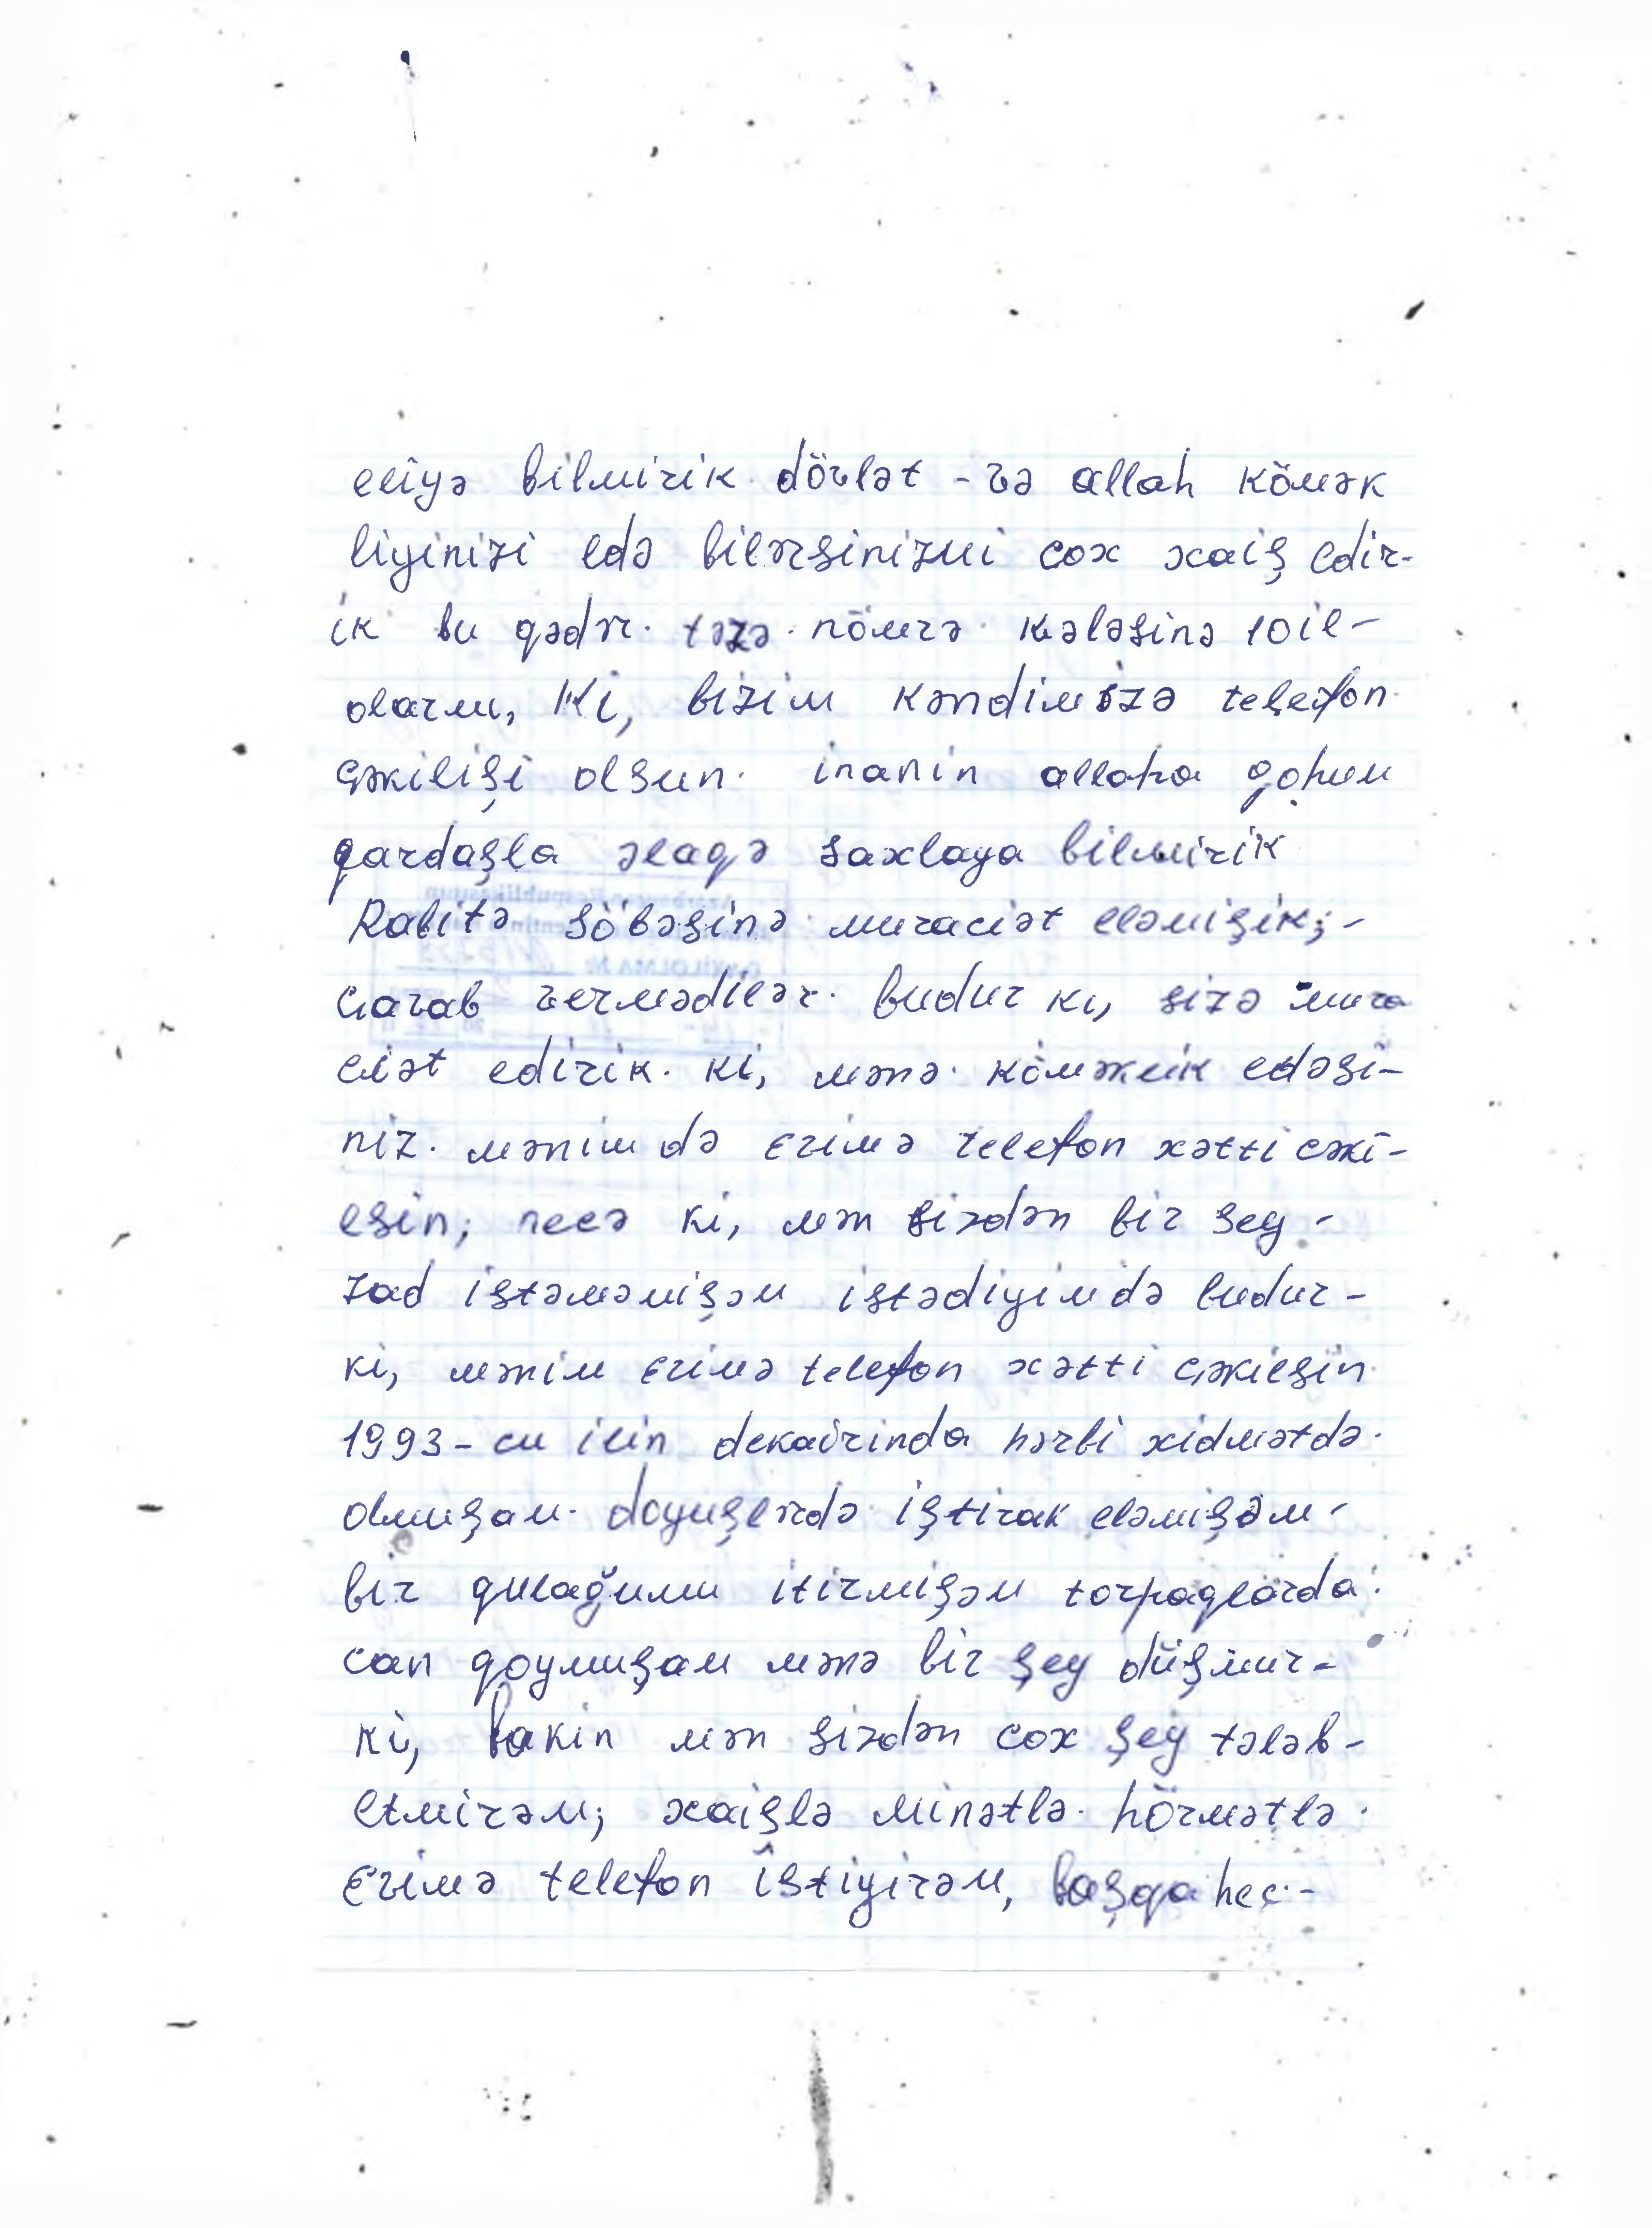 eliyə bilmirik dövlət - və allah kömək
liyinizi edə bilərsinizmi cox xaiş edir-
ik bu qədər. təzə. nömrə. kələsinə 10 il-
olarm, Ki, bizim kəndimizə telefon
çəkilişi olsun. inanin allaha qohum
qardaşla əlaqə saxlaya bilmirik
Rabitə söbəsinə muraciət eləmişik;-
cavab vermədilər. budur ki, sizə mura
ciət edirik. ki, mənə. köməklik edəsi-
niz. mənim də evimə telefon xətti cəki-
lsin; necə ki, mən sizdən bir sey -
zad istəməmişəm istədiyimdə budur-
ki, mənim evimə telefon xətti çəkilsin
1993-cu ilin dekabrinda hərbi xidmətdə.
olmuşam. doyuşlərdə iştirak eləmişəm-
bir qulağumu itirmişəm torpaqlarda.
can qoymuşam mənə bir şey düşmur-
ki, lakin mən sizdən cox şey tələb-
etmirəm; xaişlə minətlə. hörmətlə.
evimə telefon istiyirəm, başqa heç-